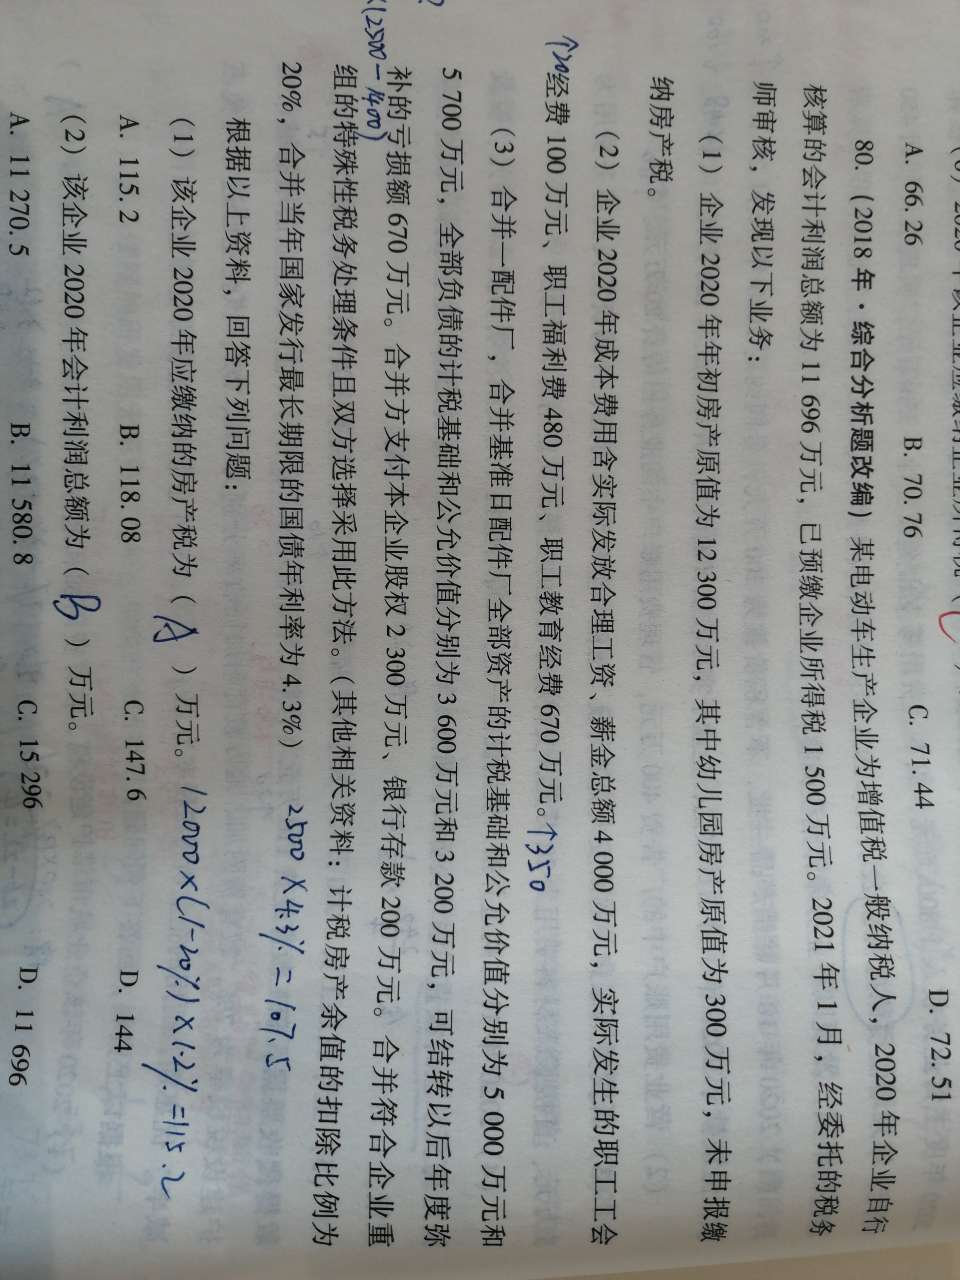 A. 66. 26 B. 70. 76 C. 71. 44 D. 72. 51
80. (2018 年·综合分析题改编) 某电动车生产企业为增值税一般纳税人，2020 年企业自行
核算的会计利润总额为 11 696 万元，已预缴企业所得税 1 500 万元。2021 年 1 月，经委托的税务
师审核，发现以下业务：
(1) 企业 2020 年年初房产原值为 12 300 万元，其中幼儿园房产原值为 300 万元，未申报缴
纳房产税。
(2) 企业 2020 年成本费用含实际发放合理工资、薪金总额 4 000 万元，实际发生的职工工会
↑20经费 100 万元、职工福利费 480 万元、职工教育经费 670 万元。↑350
(3) 合并一配件厂，合并基准日配件厂全部资产的计税基础和公允价值分别为 5 000 万元和
5 700 万元，全部负债的计税基础和公允价值分别为 3 600 万元和 3 200 万元，可结转以后年度弥
补的亏损额 670 万元。合并方支付本企业股权 2 300 万元、银行存款 200 万元。合并符合企业重
×(2500-1400)
组的特殊性税务处理条件且双方选择采用此方法。(其他相关资料：计税房产余值的扣除比例为
20%，合并当年国家发行最长期限的国债年利率为 4. 3%) 2500×4.3%=107.5
根据以上资料，回答下列问题：
(1) 该企业 2020 年应缴纳的房产税为 ( A ) 万元。 12000×(1-20%)×1.2%=115.2
A. 115. 2 B. 118. 08 C. 147. 6 D. 144
(2) 该企业 2020 年会计利润总额为 ( B ) 万元。
A. 11 270. 5 B. 11 580. 8 C. 15 296 D. 11 696